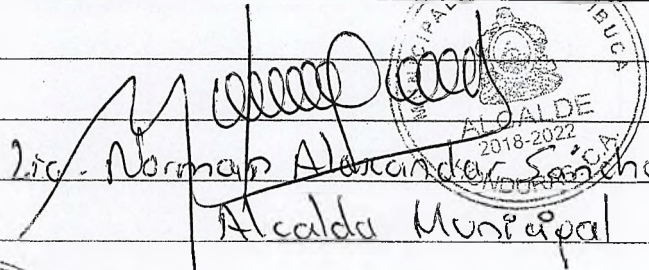 ALCALDE
2018-2022
HONDURAS, C.A.
Lic. Norman Alexander Sánche
Alcalde Municipal